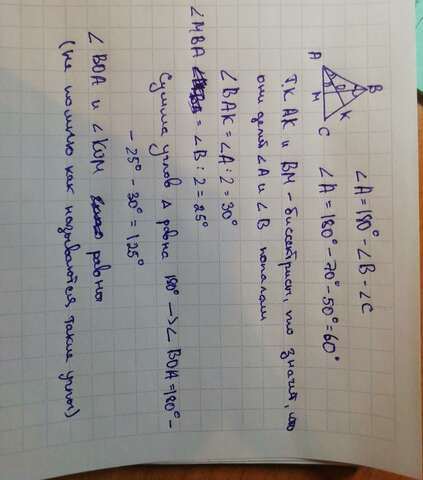 ∠A = 180° - ∠B - ∠C
∠A = 180° - 70° - 50° = 60°
A
B
C
M
K
O
Т.К АК и ВМ - биссектрисы, то значит, что
они делят ∠А и ∠В пополам
∠BAK = ∠A : 2 = 30°
∠MBA = ∠B : 2 = 25°
Сумма углов Δ равна 180° → ∠BOA = 180° -
- 25° - 30° = 125°
∠BOA и ∠KOM равны
(не помню как называются такие углы)